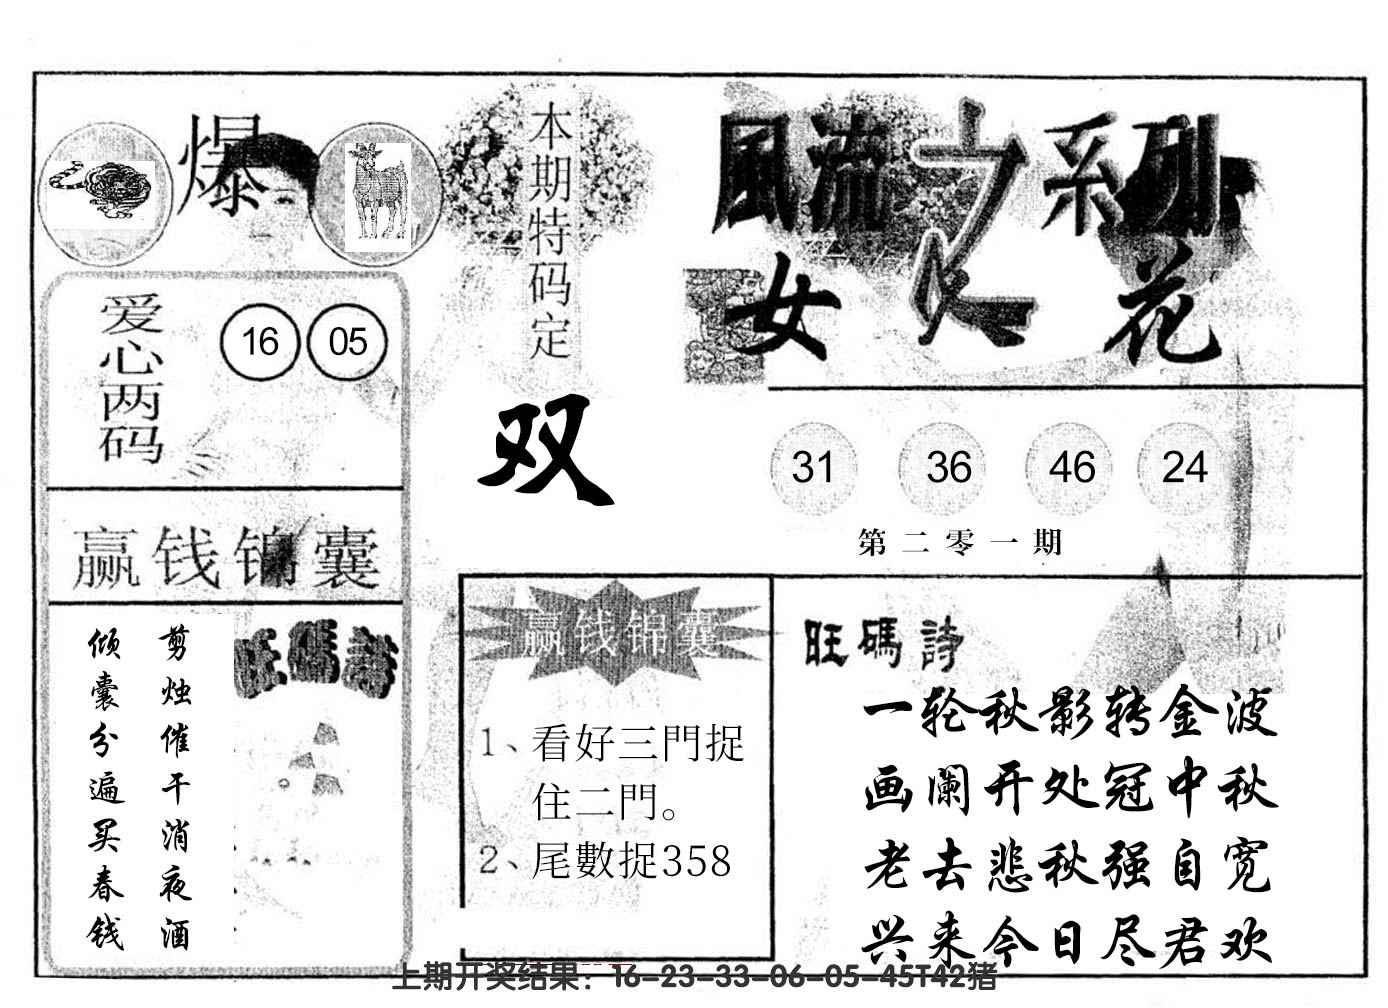 爆
本期特码定
双
風流之系列
女人花
爱心两码
16 05
31 36 46 24
第二零一期
赢钱锦囊
剪烛催干消夜酒
倾囊分遍买春钱
旺碼詩
赢钱锦囊
1、看好三門捉
住二門。
2、尾數捉358
旺碼詩
一轮秋影转金波
画阑开处冠中秋
老去悲秋强自宽
兴来今日尽君欢
上期开奖结果：16-23-33-06-05-45T42猪